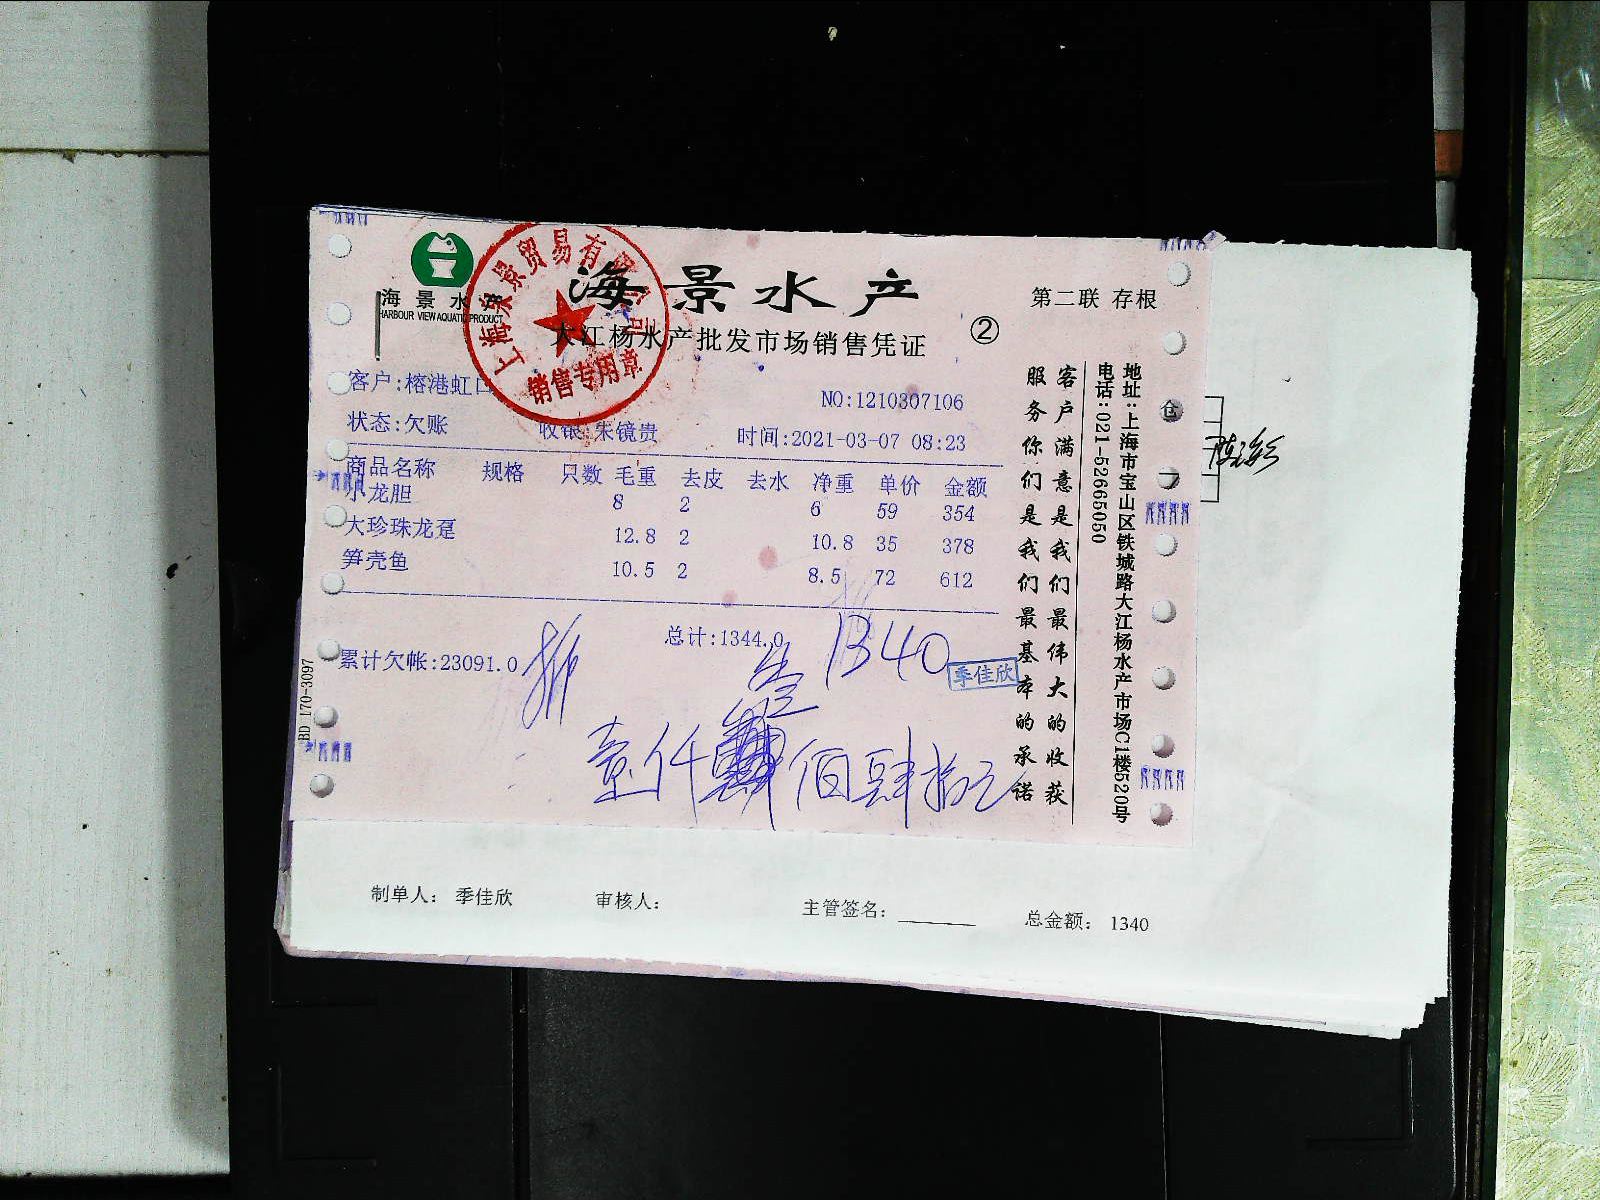 海景水产
HARBOUR VIEW AQUATIC PRODUCT
海景水产
大江杨水产批发市场销售凭证
②
第二联 存根
销售专用章
客户:榕港虹口
NO:1210307106
状态:欠账 收银:朱镜贵 时间:2021-03-07 08:23
商品名称 规格 只数 毛重 去皮 去水 净重 单价 金额
小龙胆 8 2 6 59 354
大珍珠龙趸 12.8 2 10.8 35 378
笋壳鱼 10.5 2 8.5 72 612
总计:1344.0
累计欠帐:23091.0
1340
季佳欣
壹仟叁佰肆拾元
BD 170-3097
客户满意是我们最伟大的收获
服务你们是我们最基本的承诺
地址:上海市宝山区铁城路大江杨水产市场C1楼520号
电话:021-52665050
仓
制单人: 季佳欣 审核人: 主管签名: 总金额: 1340